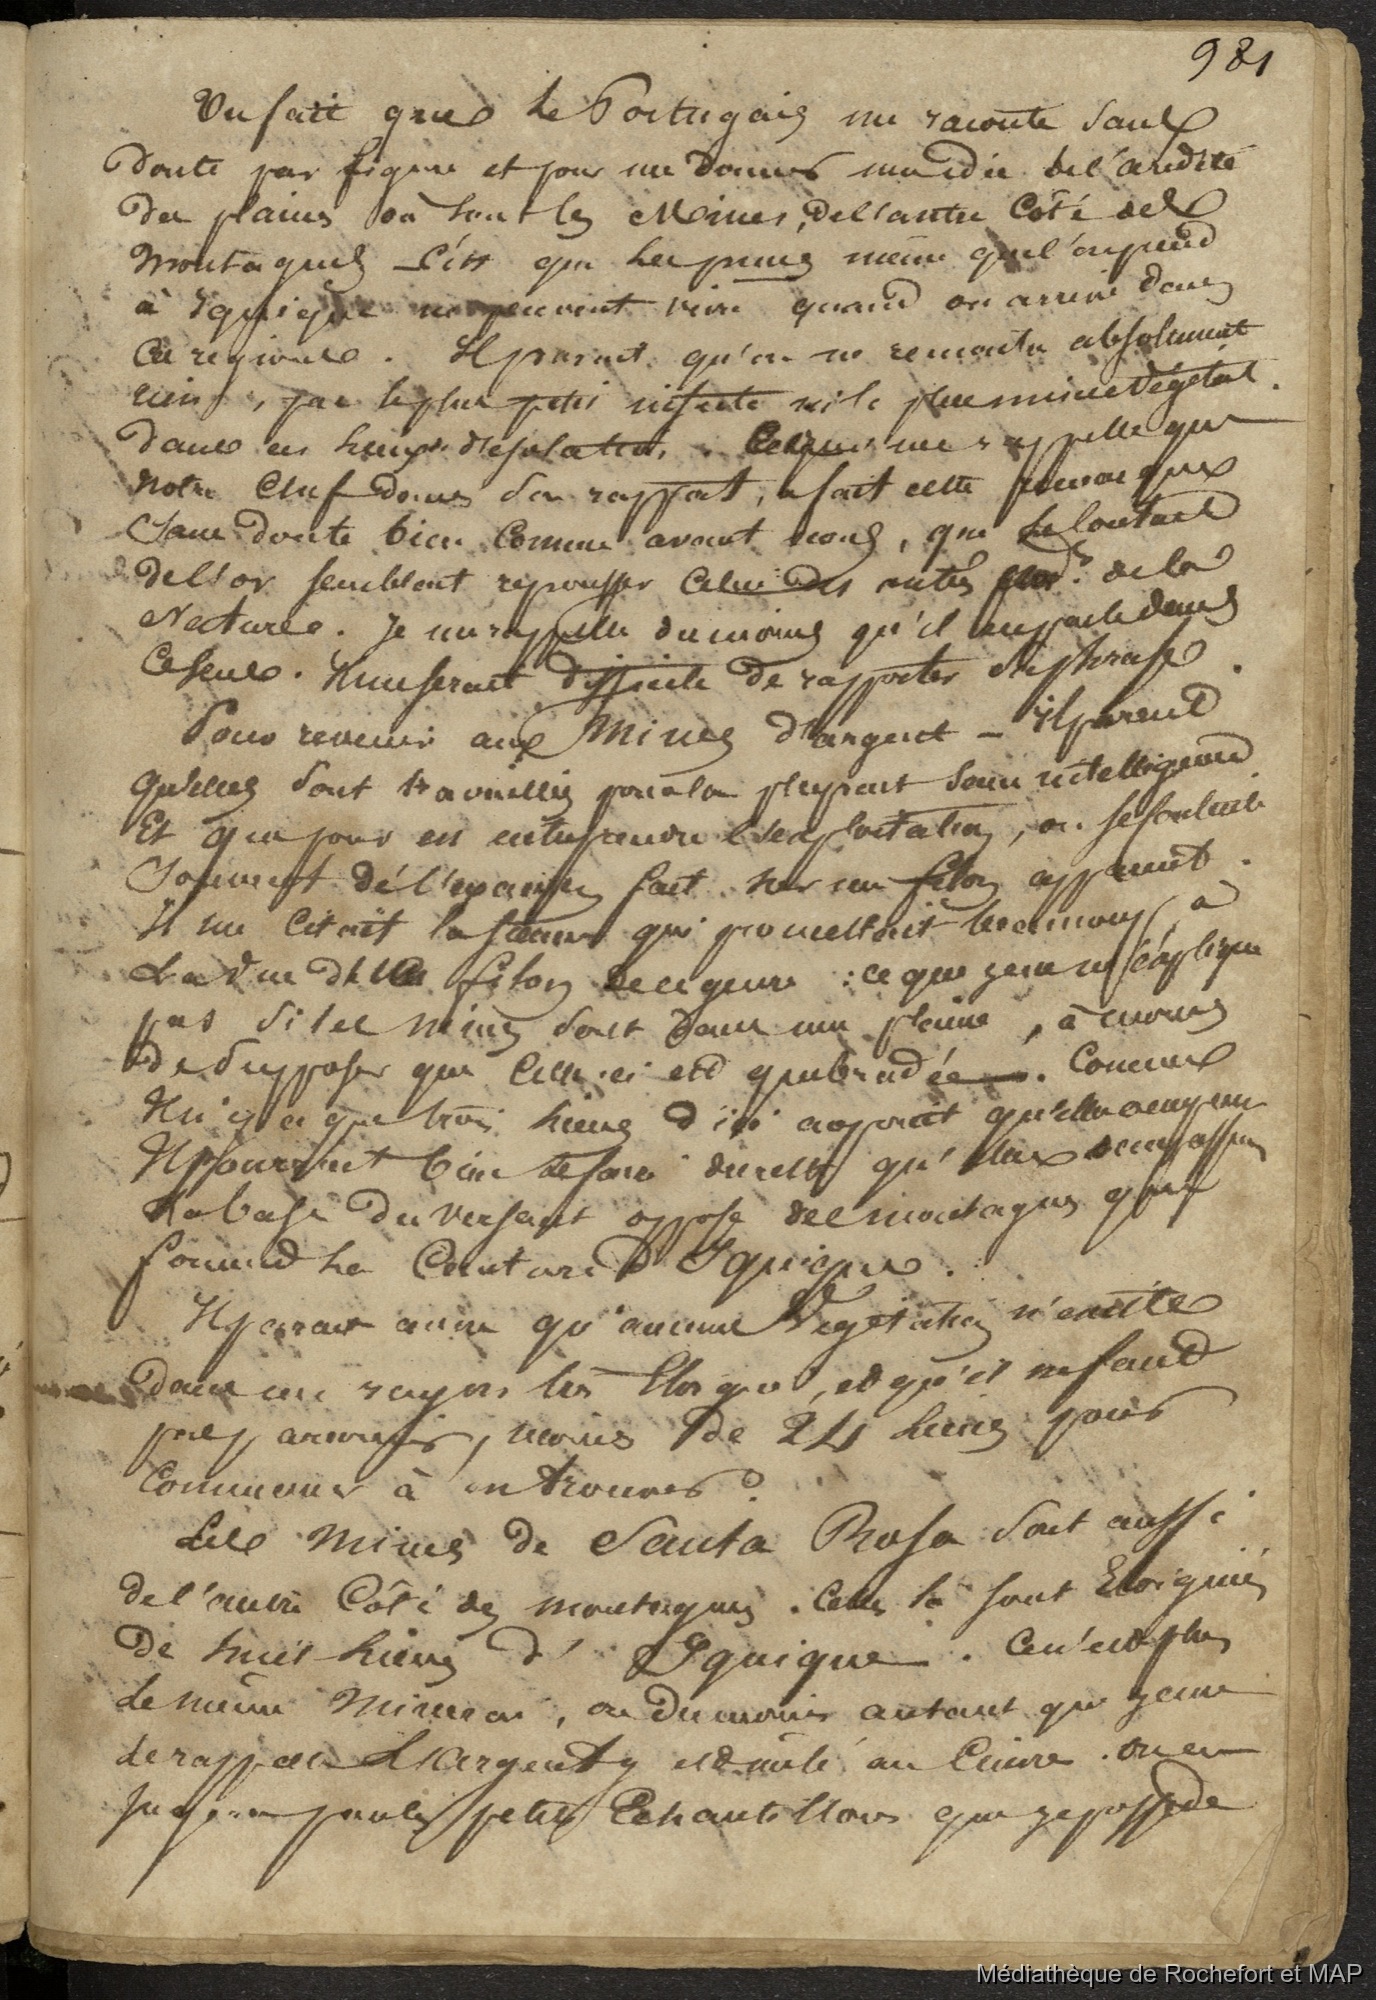 981
Un fait que le Portugais me raconte sans
doute par figure et pour me donner une idée de l'aridité
des plaines où sont les Mines, de l'autre Côté des
montagnes C'est que les puces même que l'on prend
à Iquique ne peuvent vivre quand on arrive dans
ces regions. Il parait qu'on ne rencontre absolument
rien, pas le plus petit insecte ni le plus mince végétal
dans ces lieux desolation. Ce qui me rappelle que
notre Chef dans son rapport, a fait cette remarque
sans doute bien connue avant nous, que le Contact
de l'or semblent repousser Celui des autres prod.ns de la
Nature. Je me rappelle du moins qu'il en parle dans
ce sens. Il me serait difficile de rapporter sa phrase.
Pour revenir aux Mines d'argent - Il parait
qu'elles sont travaillées pour la plupart sans intelligence
Et que pour en entreprendre l'exploitation, on se
souvent de l'examen fait sur un filon apparent.
Il me citait la femme qui promettait à
La vue d'un filon de ce genre : ce que je ne m'éxplique
pas si les mines sont dans une plaine, à moins
de supposer que Celle-ci est quebradée. Comme
Il n'y a que trois lieues d'ici au point qu'elle occupe
Il pourrait bien se faire du reste qu'elles occupassent
La base du versant opposé des montagnes qui
forment la Ceinture d'Iquique.
Il parait aussi qu'aucune Végétation n'existe
dans un rayon très Eloigné, et qu'il ne faut
pas parcourir, moins de 24 lieues pour
Commencer à en trouver.
Les mines de Santa Rosa sont aussi
de l'autre Côté des montagnes. Celles là sont Eloignées
de huit lieues d'Iquique. Ce n'est plus
Le même Minerai, ou du moins autant que je me
le rappelle L'Argent y est mêlé au Cuivre. On en
jugera par les petits Echantillons que je possède
Médiathèque de Rochefort et MAP